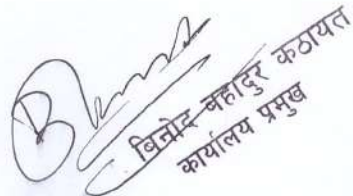 बिनोद बहादुर कठायत
कार्यालय प्रमुख